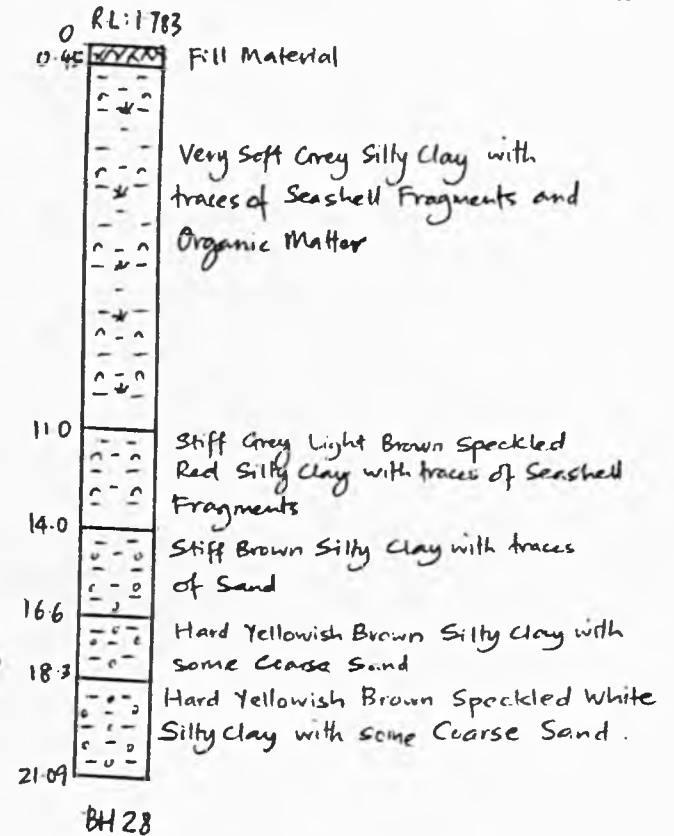 R.L: 1.783
0
0.45 Fill Material
Very Soft Grey Silty Clay with
traces of Seashell Fragments and
Organic Matter
11.0
Stiff Grey Light Brown Speckled
Red Silty Clay with traces of Seashell
Fragments
14.0
Stiff Brown Silty Clay with traces
of Sand
16.6
Hard Yellowish Brown Silty Clay with
some Coarse Sand
18.3
Hard Yellowish Brown Speckled White
Silty Clay with some Coarse Sand.
21.09
BH 28